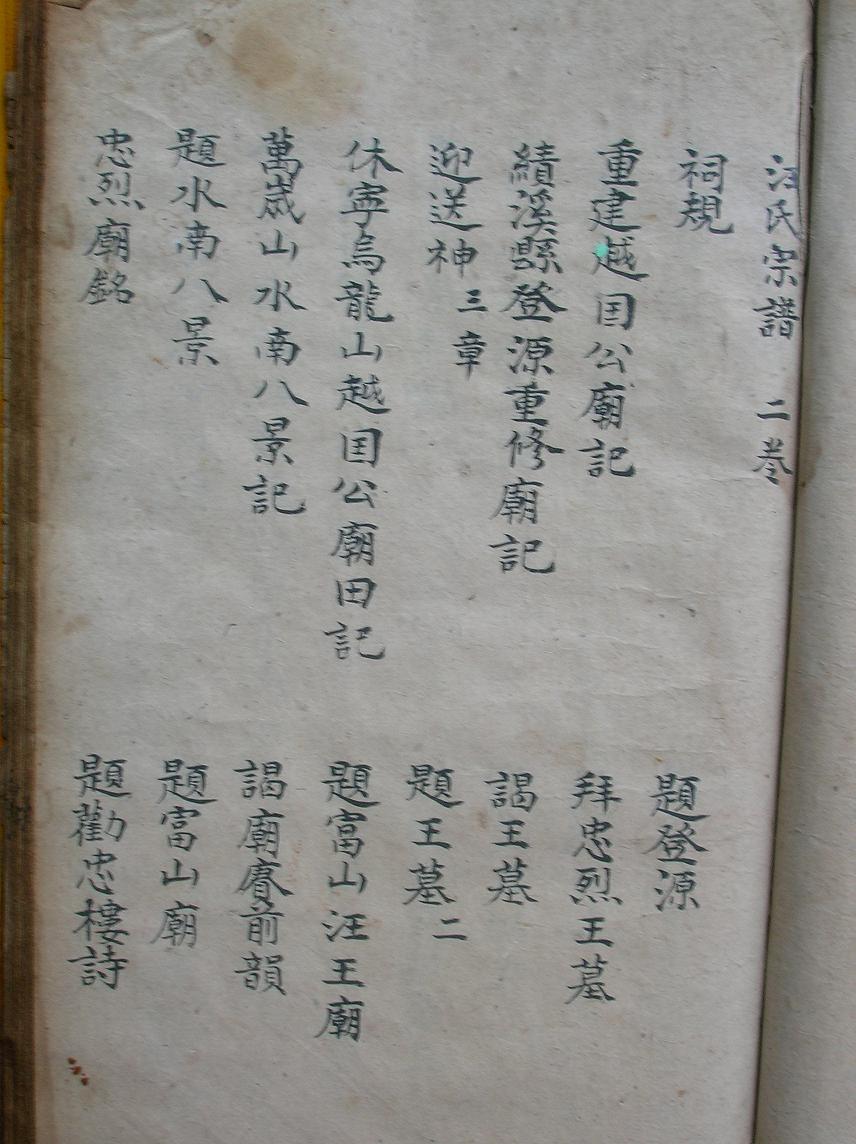 汪氏宗譜 二卷
祠規
重建越国公廟記
績溪縣登源重修廟記
迎送神三章
休寧烏龍山越国公廟田記
萬歲山水南八景記
題水南八景
忠烈廟銘
題登源
拜忠烈王墓
謁王墓
題王墓二
題富山汪王廟
謁廟賡前韻
題富山廟
題勸忠樓詩